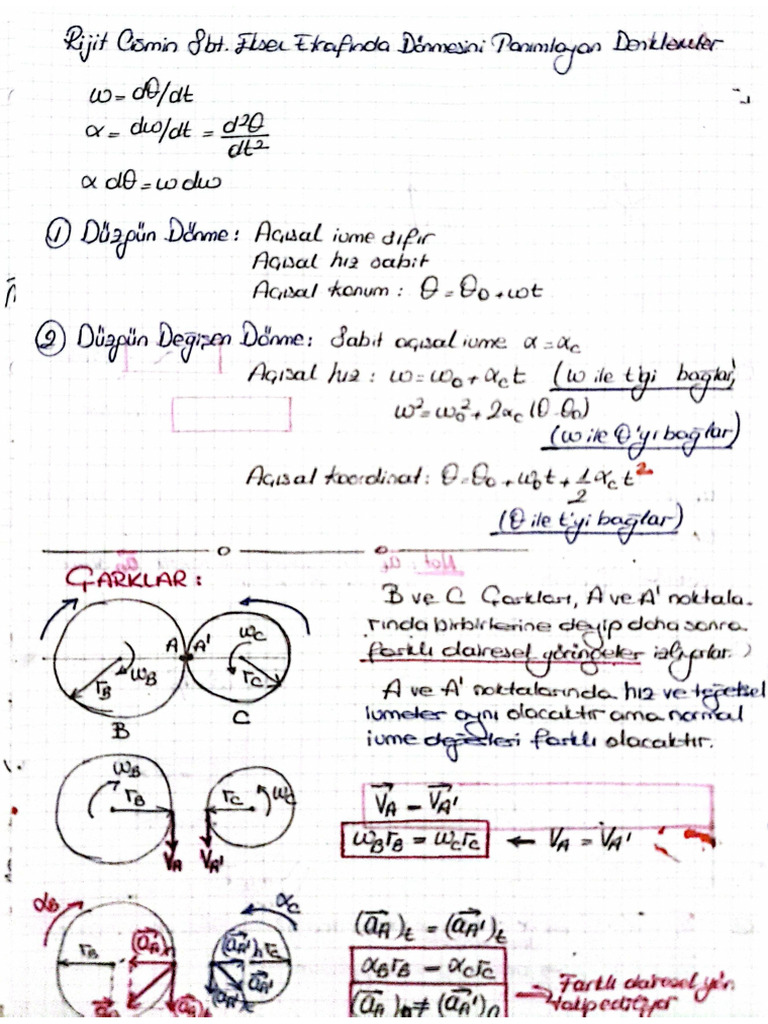 Rijit Cismin Sbt. Eksen Etrafında Dönmesini Tanımlayan Denklemler
ω = dθ/dt
α = dω/dt = d²θ/dt²
α dθ = ω dω
① Düzgün Dönme: Açısal ivme sıfır
Açısal hız sabit
Açısal konum : θ = θ₀ + ωt
② Düzgün Değişen Dönme: Sabit açısal ivme α = αc
Açısal hız : ω = ω₀ + αc t (ω ile t'yi bağlar)
ω² = ω₀² + 2αc (θ - θ₀)
(ω ile θ'yı bağlar)
Açısal koordinat: θ = θ₀ + ω₀t + 1/2 αc t²
(θ ile t'yi bağlar)
ÇARKLAR :
B ve C Çarkları, A ve A' noktala-
rında birbirlerine deyip daha sonra
farklı dairesel yörüngeler izliyorlar.
A ve A' noktalarında hız ve teğetsel
ivmeler aynı olacaktır ama normal
ivme değerleri farklı olacaktır.
A A' ωB rB ωC rC
B C
ωB rB rC ωC
VA VA'
VA = VA'
ωB rB = ωC rC ← VA = VA'
αB αC
rB (aA)n (aA')n rC
aA (aA)t (aA')t aA'
(aA)t = (aA')t
αB rB = αC rC
(aA)n ≠ (aA')n → Farklı dairesel yön
takip ediliyor